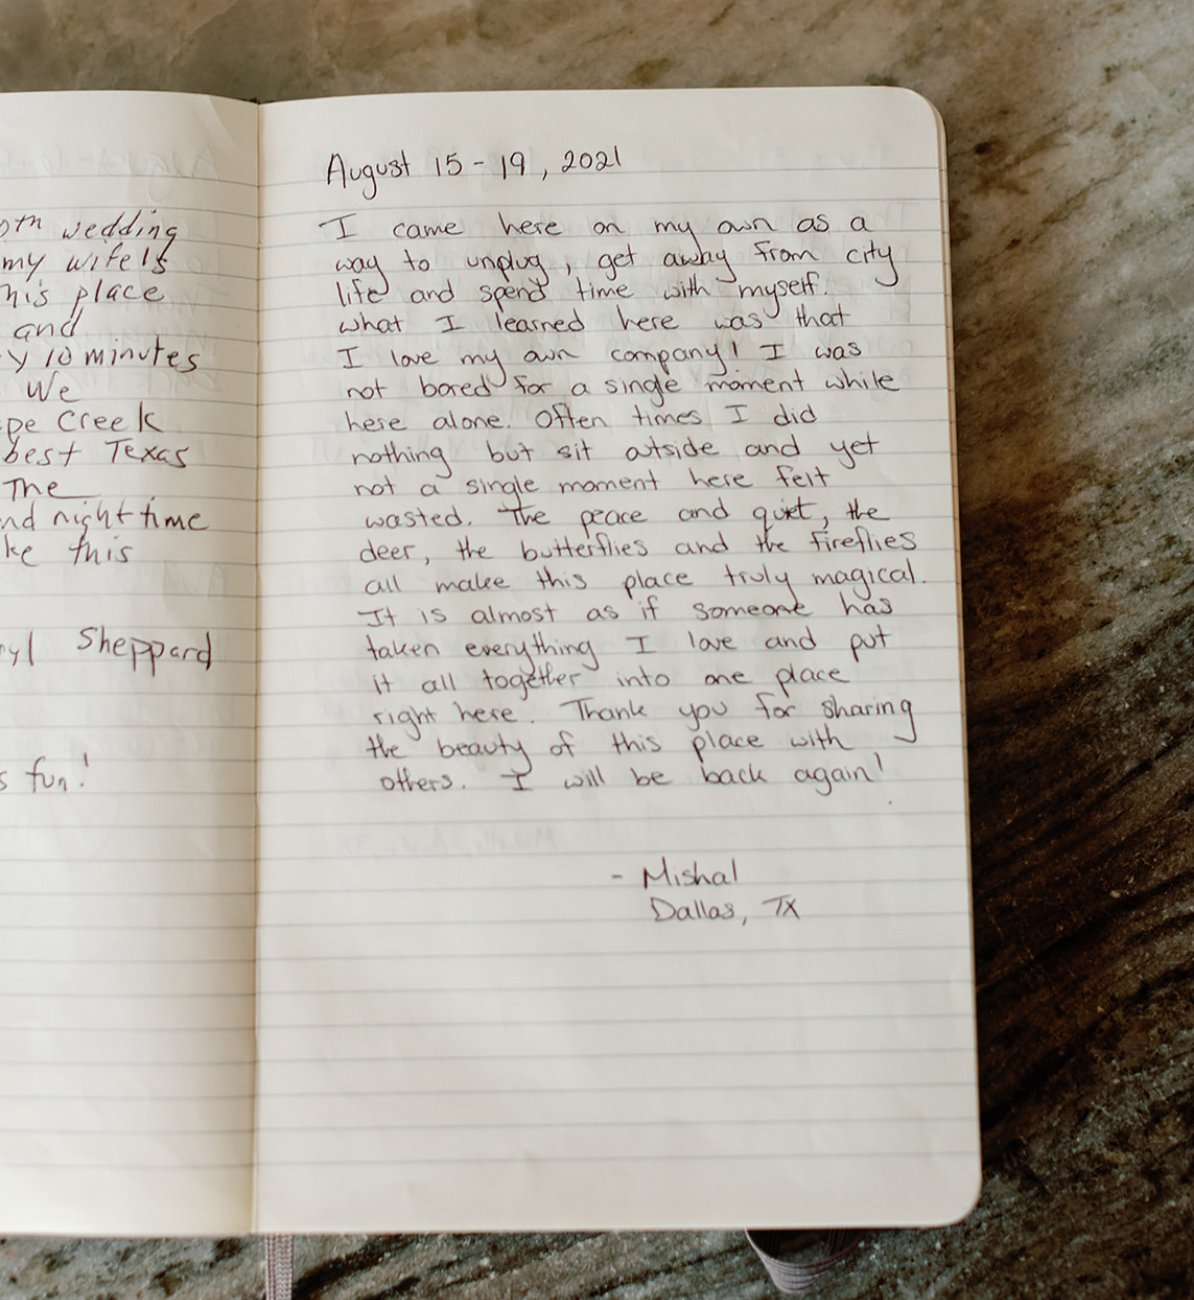 wedding
my wife's
place
and
10 minutes
We
Creek
best Texas
The
night time
this
Sheppard
fun!
August 15 - 19, 2021
I came here on my own as a
way to unplug, get away from city
life and spend time with myself.
what I learned here was that
I love my own company! I was
not bored for a single moment while
here alone. Often times I did
nothing but sit outside and yet
not a single moment here felt
wasted. The peace and quiet, the
deer, the butterflies and the fireflies
all make this place truly magical.
It is almost as if someone has
taken everything I love and put
it all together into one place
right here. Thank you for sharing
the beauty of this place with
others. I will be back again!
- Mishal
Dallas, TX